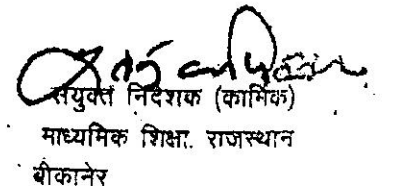 संयुक्त निदेशक (कार्मिक)
माध्यमिक शिक्षा. राजस्थान
बीकानेर